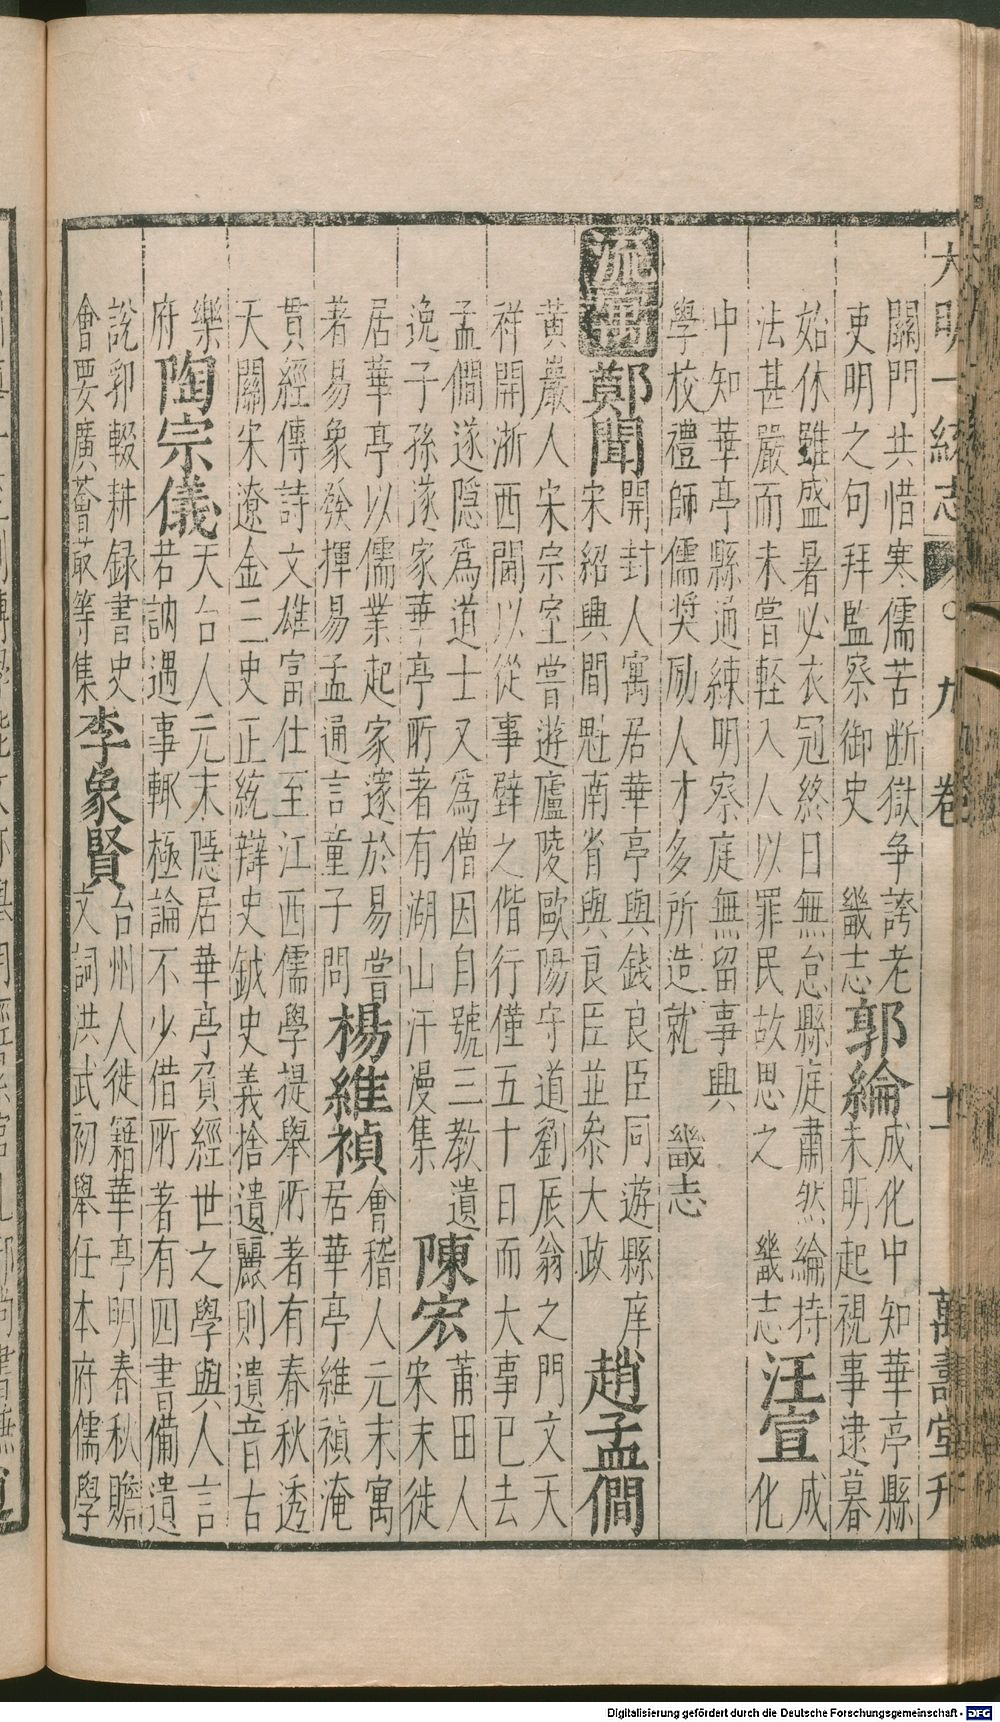 大明一統志 九卷 十一 萬壽堂刋
關門共惜寒儒苦斷獄爭誇老
吏明之句拜監察御史 畿志
郭綸
成化中知華亭縣
未明起視事逮暮
始休雖盛暑必衣冠終日無怠縣庭肅然綸持
法甚嚴而未嘗輕入人以罪民故思之 畿志
汪宣
成
化
中知華亭縣通練明察庭無留事興
學校禮師儒奬勵人才多所造就 畿志
流寓
鄭聞
開封人寓居華亭與錢良臣同遊縣庠
宋紹興間魁南省與良臣並叅大政
趙孟僩
黃巖人宋宗室嘗遊廬陵歐陽守道劉辰翁之門文天
祥開浙西閫以從事辟之偕行僅五十日而大事已去
孟僩遂隱爲道士又爲僧因自號三教遺
逸子孫遂家華亭所著有湖山汗漫集
陳宏
莆田人
宋末徙
居華亭以儒業起家邃於易嘗
著易象發揮易孟通言童子問
楊維禎
會稽人元末寓
居華亭維禎淹
貫經傳詩文雄富仕至江西儒學提舉所著有春秋透
天關宋遼金三史正統辯史鉞史義拾遺麗則遺音古
樂
府
陶宗儀
天台人元末隱居華亭負經世之學與人言
若訥遇事輒極論不少借所著有四書備遺
說郛輟耕録書史
會要廣薈蕞等集
李象賢
台州人徙籍華亭明春秋贍
文詞洪武初舉任本府儒學
Digitalisierung gefördert durch die Deutsche Forschungsgemeinschaft - DFG